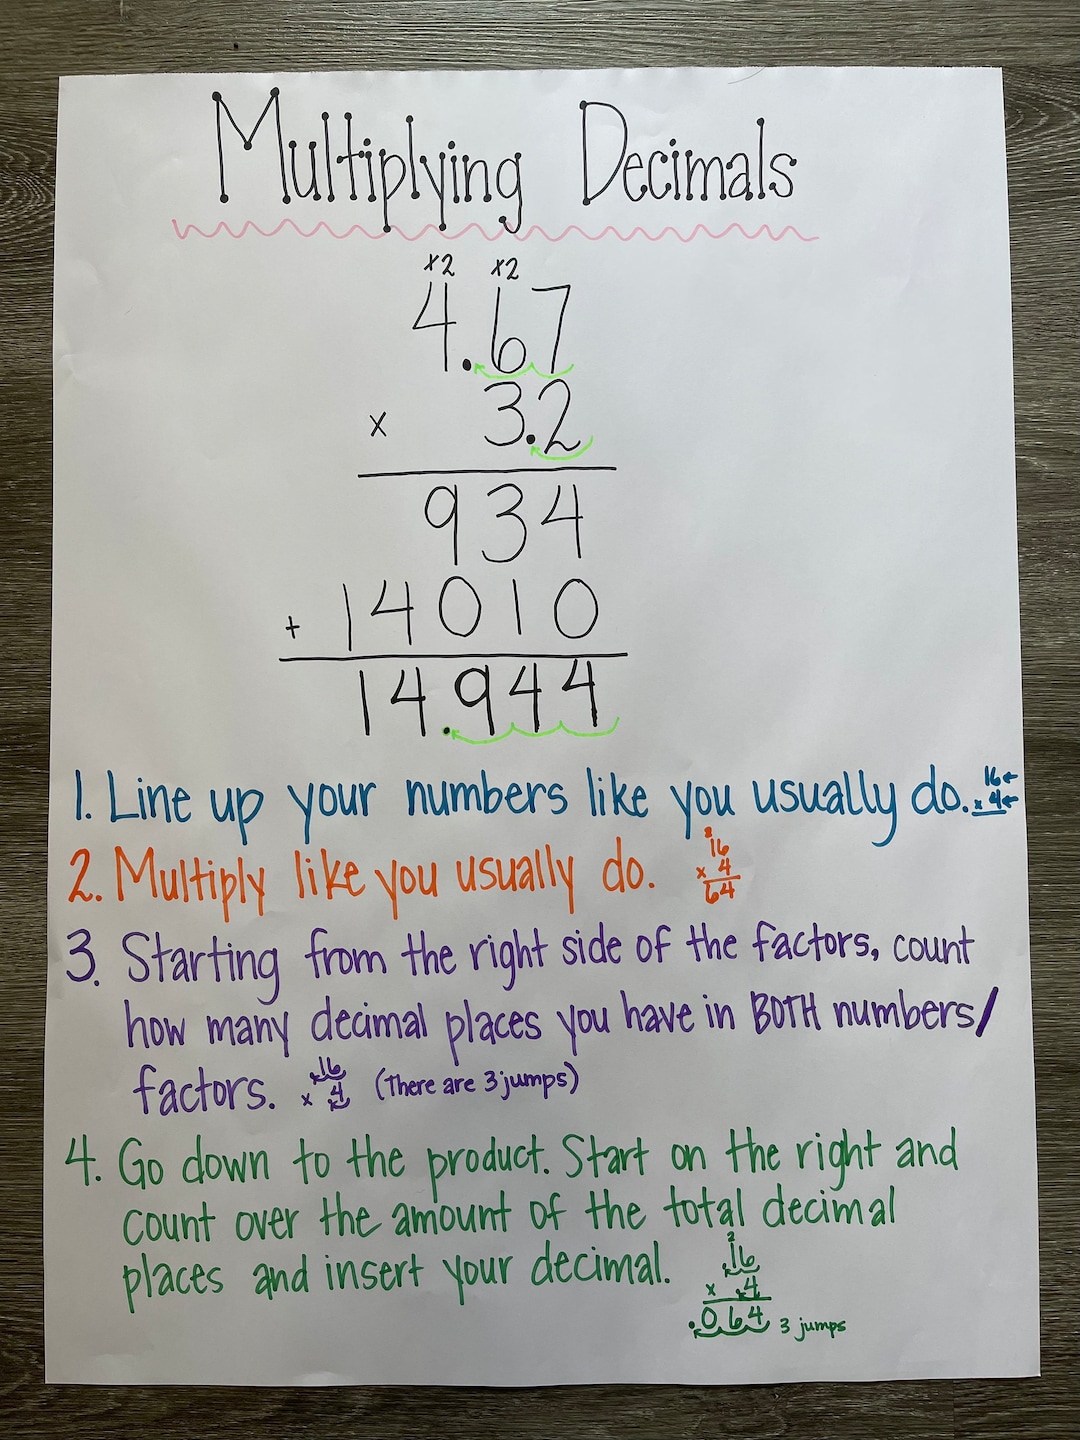 Multiplying Decimals
x2 x2
4.67
x 3.2
934
+ 14010
14.944
1. Line up your numbers like you usually do. 16
x 4
2. Multiply like you usually do. 16
x 4
64
3. Starting from the right side of the factors, count
how many decimal places you have in BOTH numbers/
factors. .16
x .4 (There are 3 jumps)
4. Go down to the product. Start on the right and
count over the amount of the total decimal
places and insert your decimal. 2
.16
x .4
.064 3 jumps